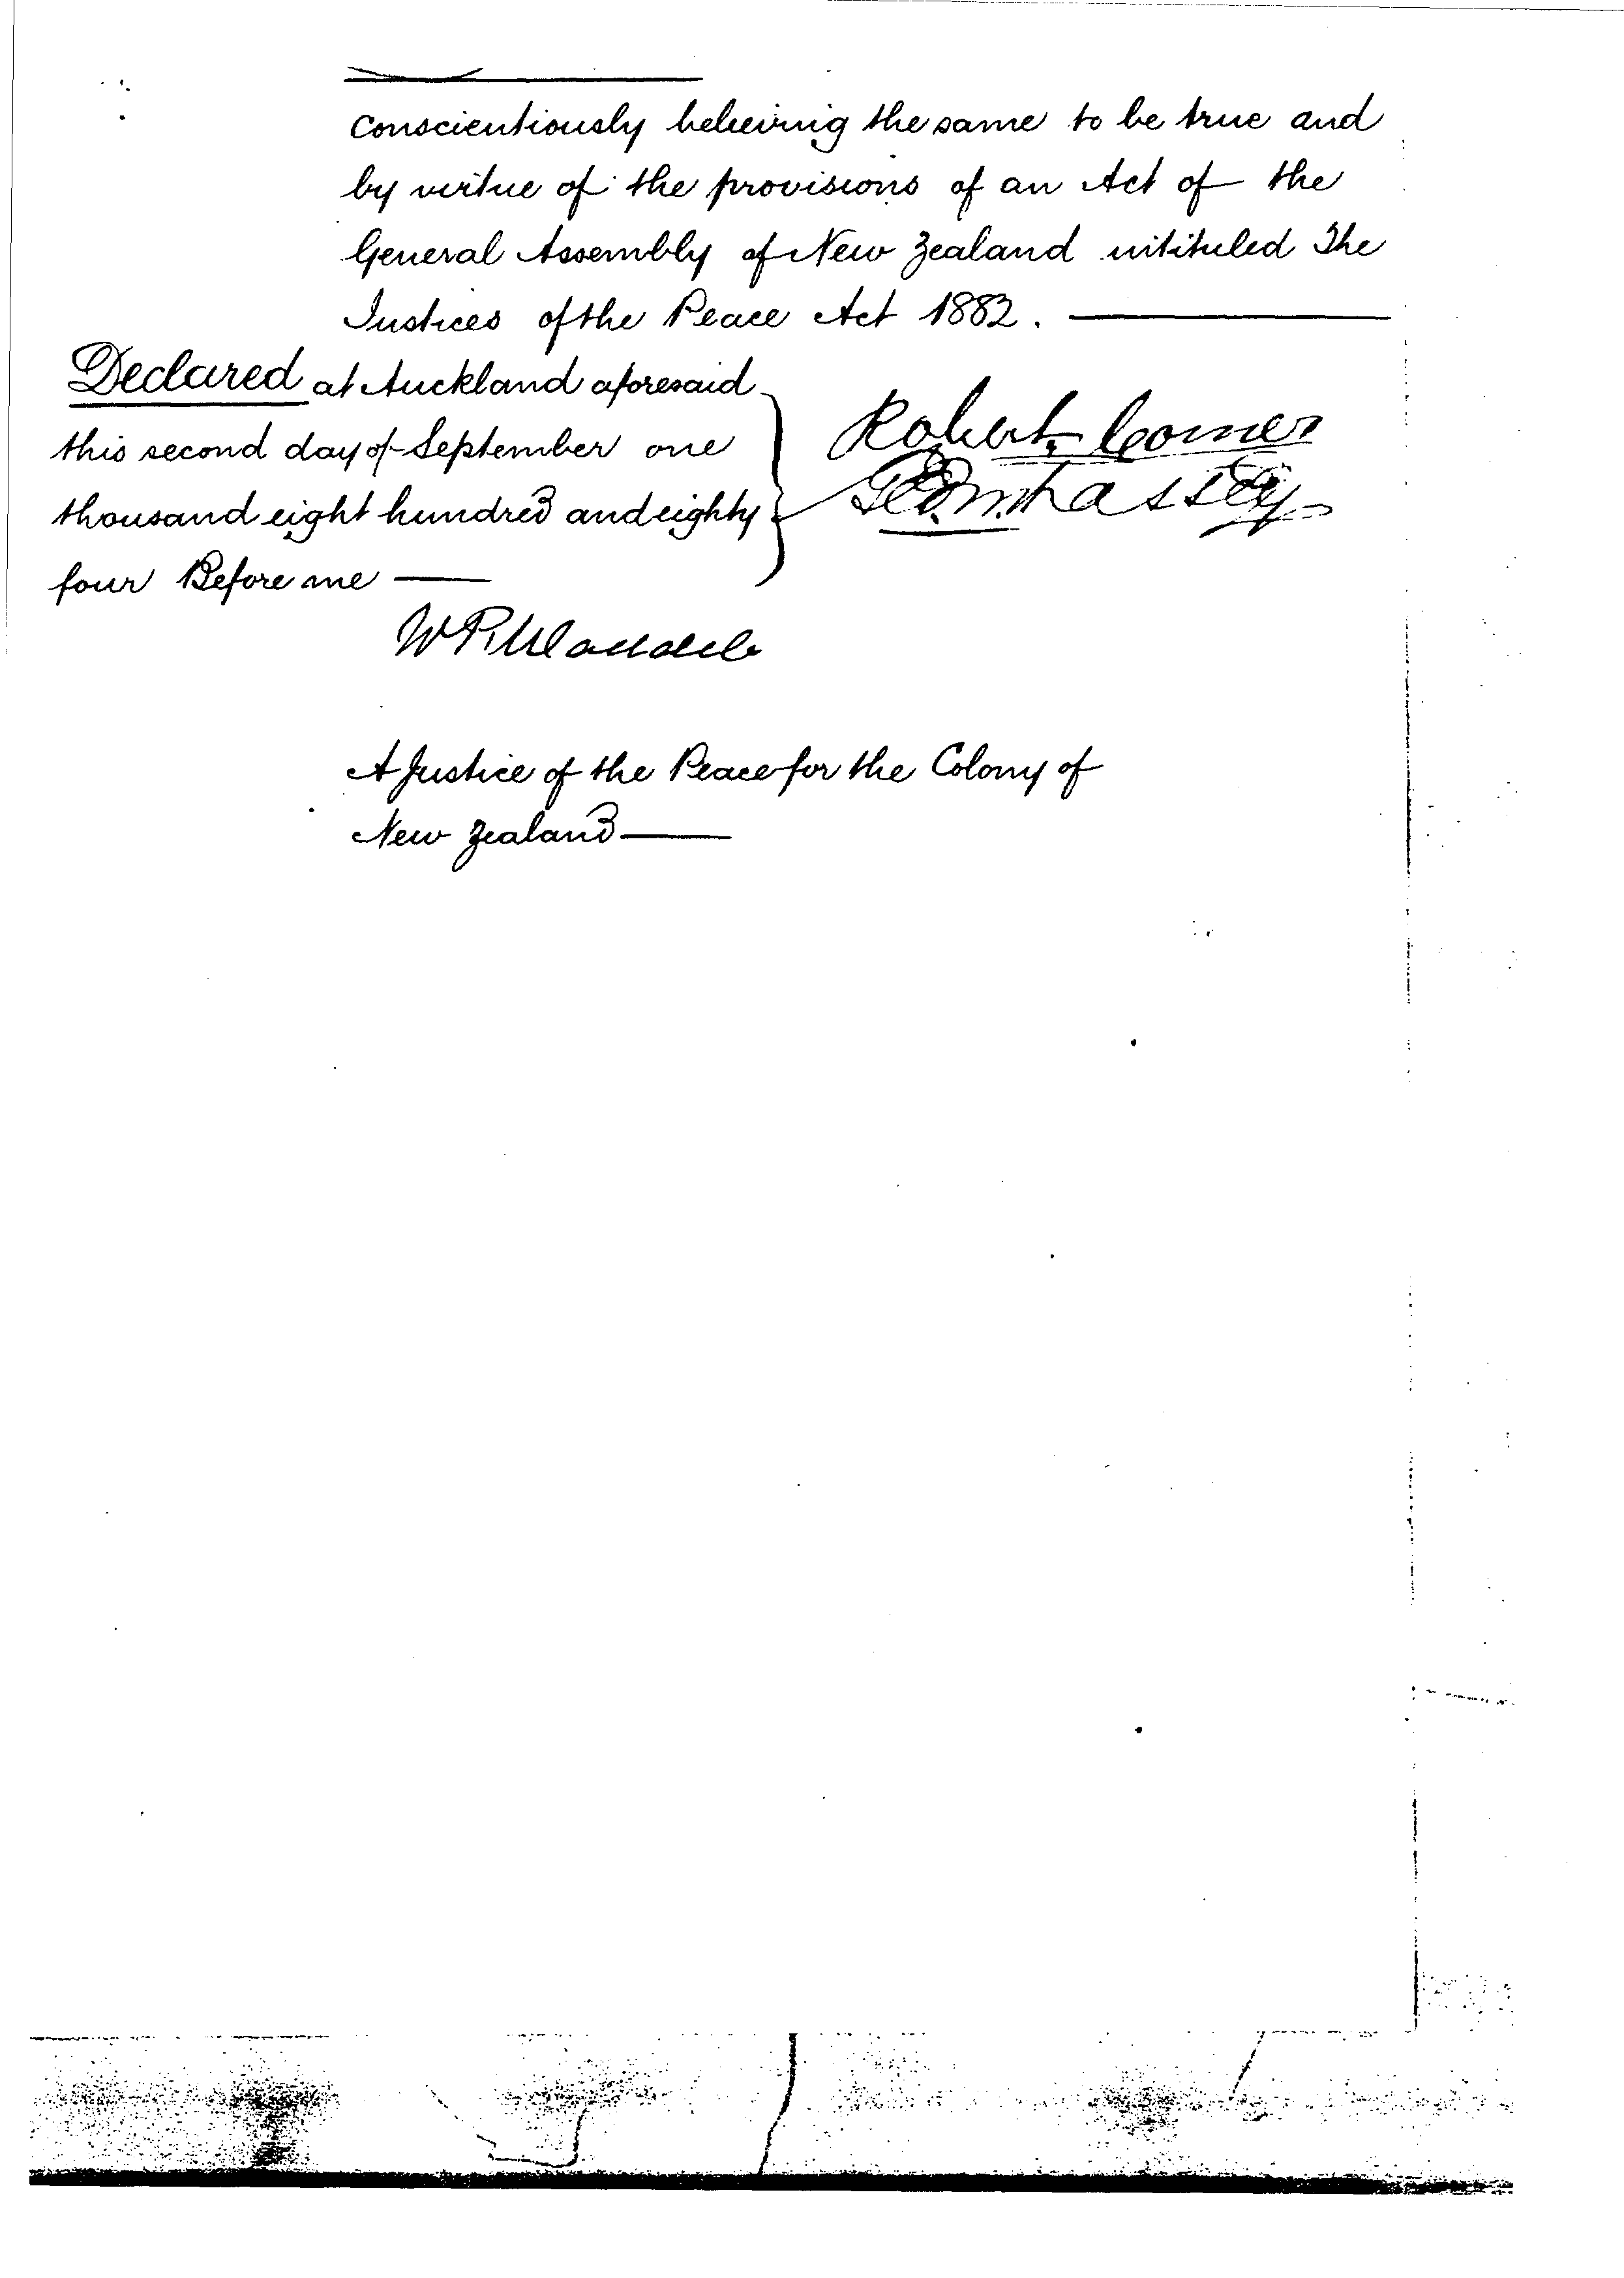 conscientiously believing the same to be true and
by virtue of the provisions of an Act of the
General Assembly of New Zealand intituled The
Justices of the Peace Act 1882.
Declared at Auckland aforesaid
this second day of September one
thousand eight hundred and eighty
four Before me
Robert Comer
Massey
W R Waddel
A Justice of the Peace for the Colony of
New Zealand